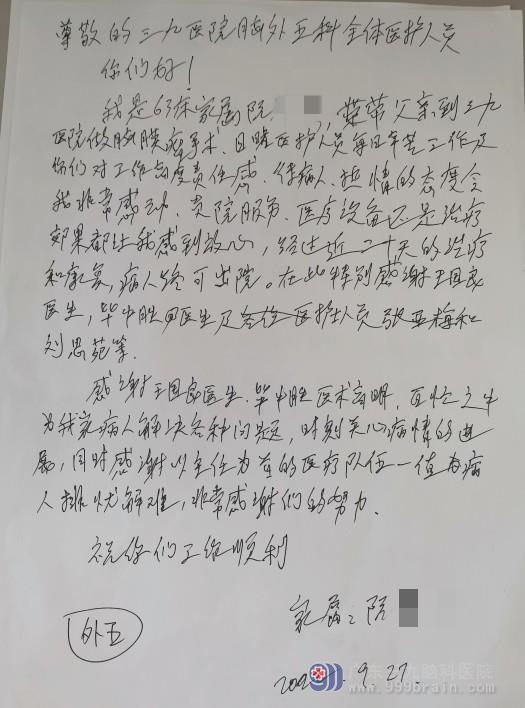 尊敬的三九医院脑外五科全体医护人员
你们好！
我是63床家属阮 带父亲到三九
医院做脑膜瘤手术、目睹医护人员每日辛苦工作及
你们对工作高度责任感、待病人、热情的态度令
我非常感动、贵院服务、医疗设备还是治疗
效果都让我感到放心，经过近二十天的治疗
和康复，病人终可出院。在此特别感谢王国良
医生，毕中胜医生及医护人员张亚梅和
刘思苑等.
感谢王国良医生.毕中胜医术高明，百忙之中
为我家病人解决各种问题，时刻关心病情的进
展，同时感谢以主任为首的医疗队伍一值为病
人排忧解难，非常感谢们的努力.
祝你们工作顺利
家属：阮
外五
9.27.
广东三九脑科医院
www.999brain.com